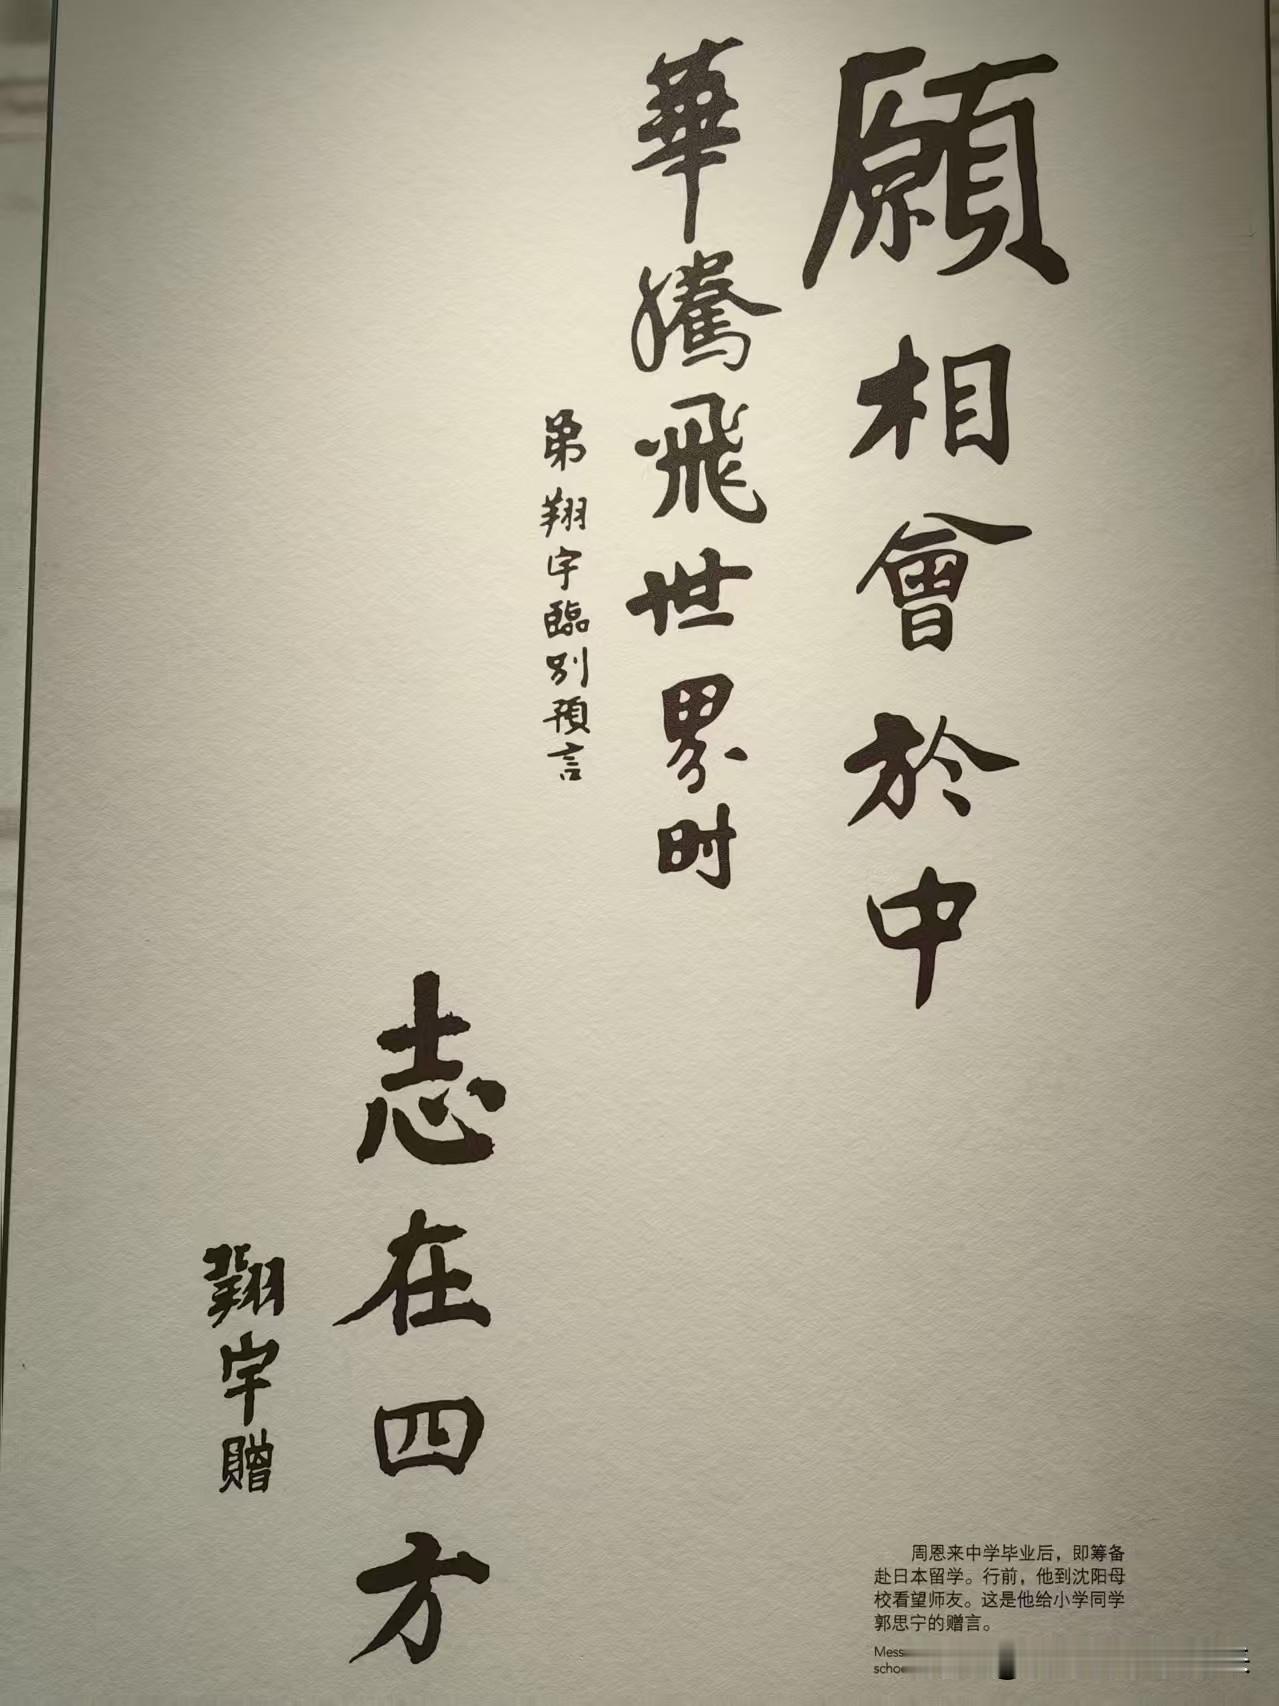 願相會於中
華騰飛世界时
弟翔宇臨别預言
志在四方
翔宇贈
周恩来中学毕业后，即筹备
赴日本留学。行前，他到沈阳母
校看望师友。这是他给小学同学
郭思宁的赠言。